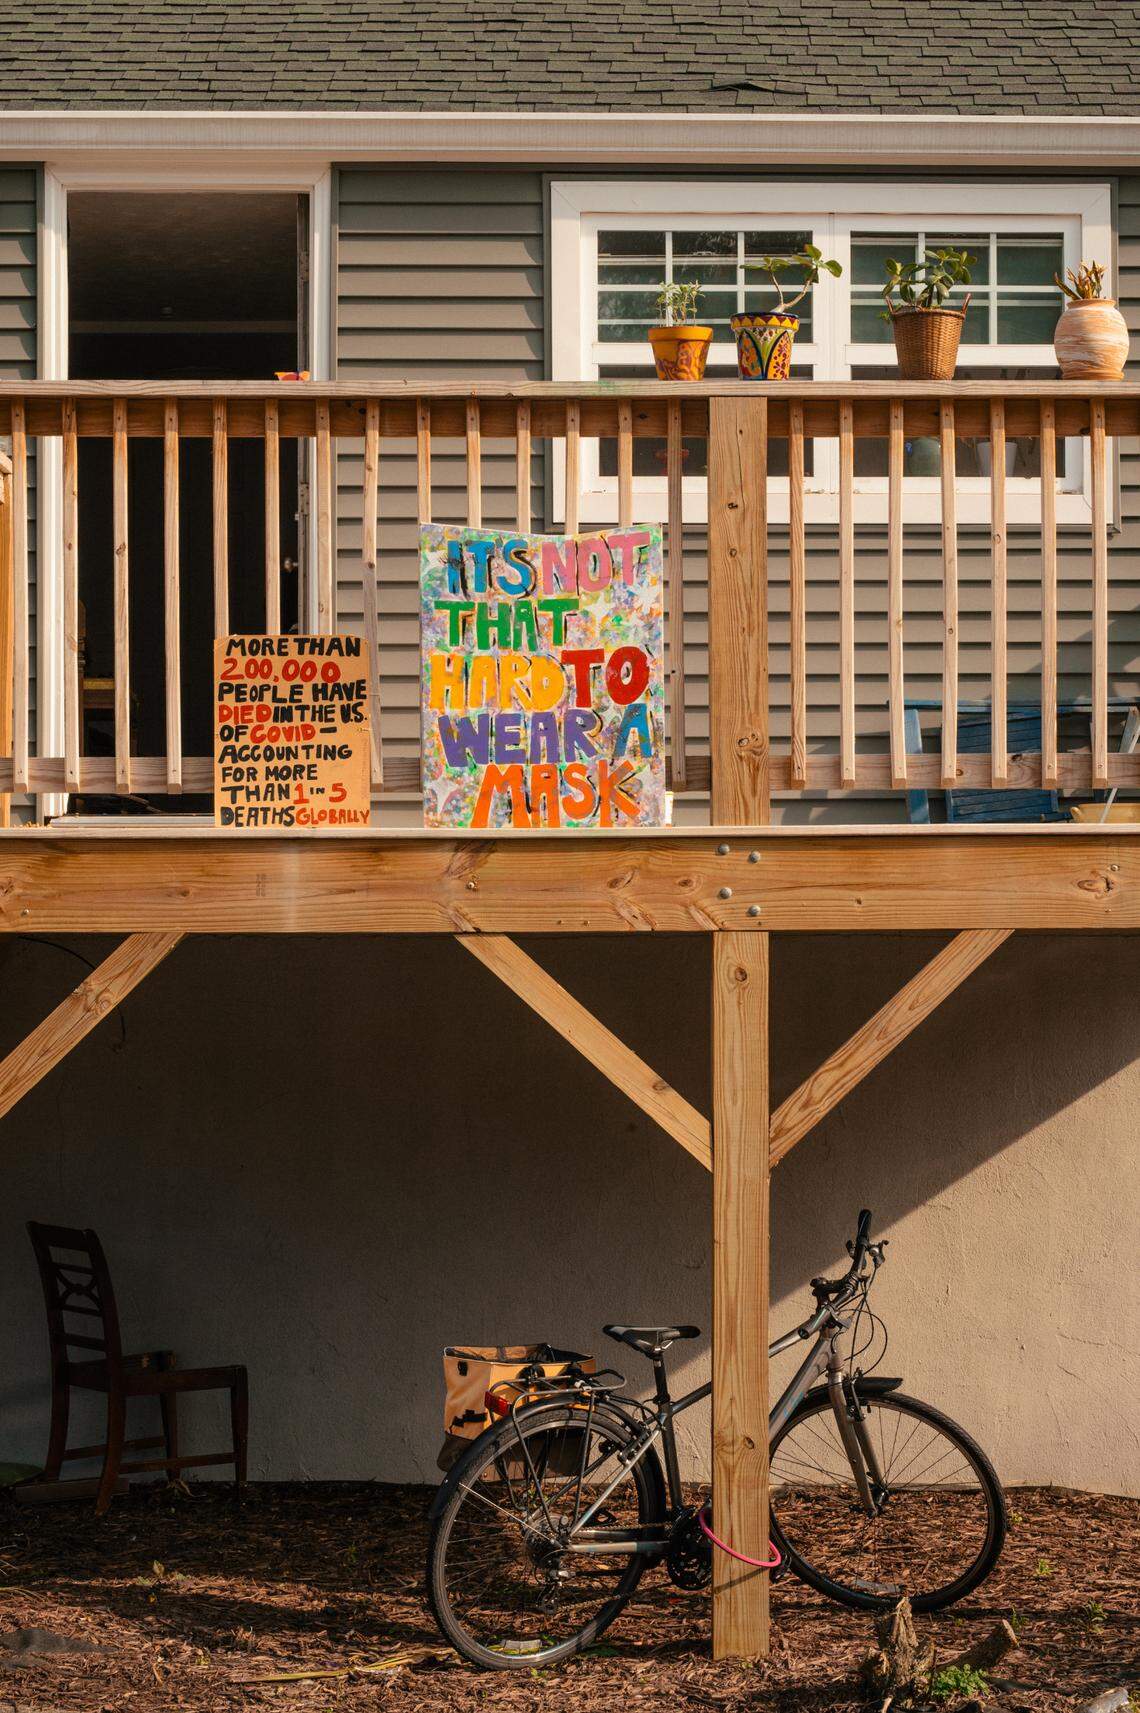 MORE THAN
200,000
PEOPLE HAVE
DIED IN THE U.S.
OF COVID—
ACCOUNTING
FOR MORE
THAN 1 IN 5
DEATHS GLOBALLY
IT'S NOT
THAT
HARD TO
WEAR A
MASK